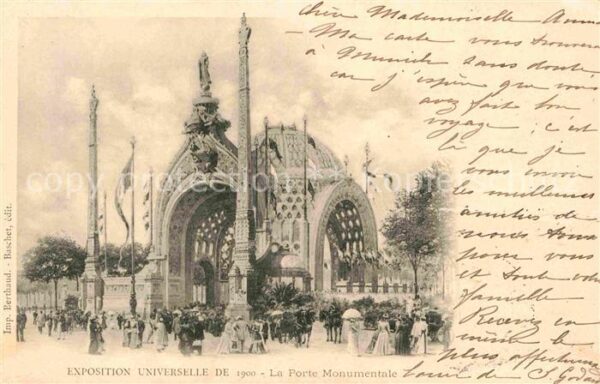 chère Mademoiselle Anna
Ma carte vous trouvera
à Munich sans doute,
car j'espère que vous
avez fait bon
voyage; c'est
là que je
vous envoie
les meilleures
amitiés de
nous tous
pour vous
et toute votre
famille
Recevez en
même le
plus affectueux
de
copyright
Imp. Berthaud. - Bascher, édit.
EXPOSITION UNIVERSELLE DE 1900 - La Porte Monumentale